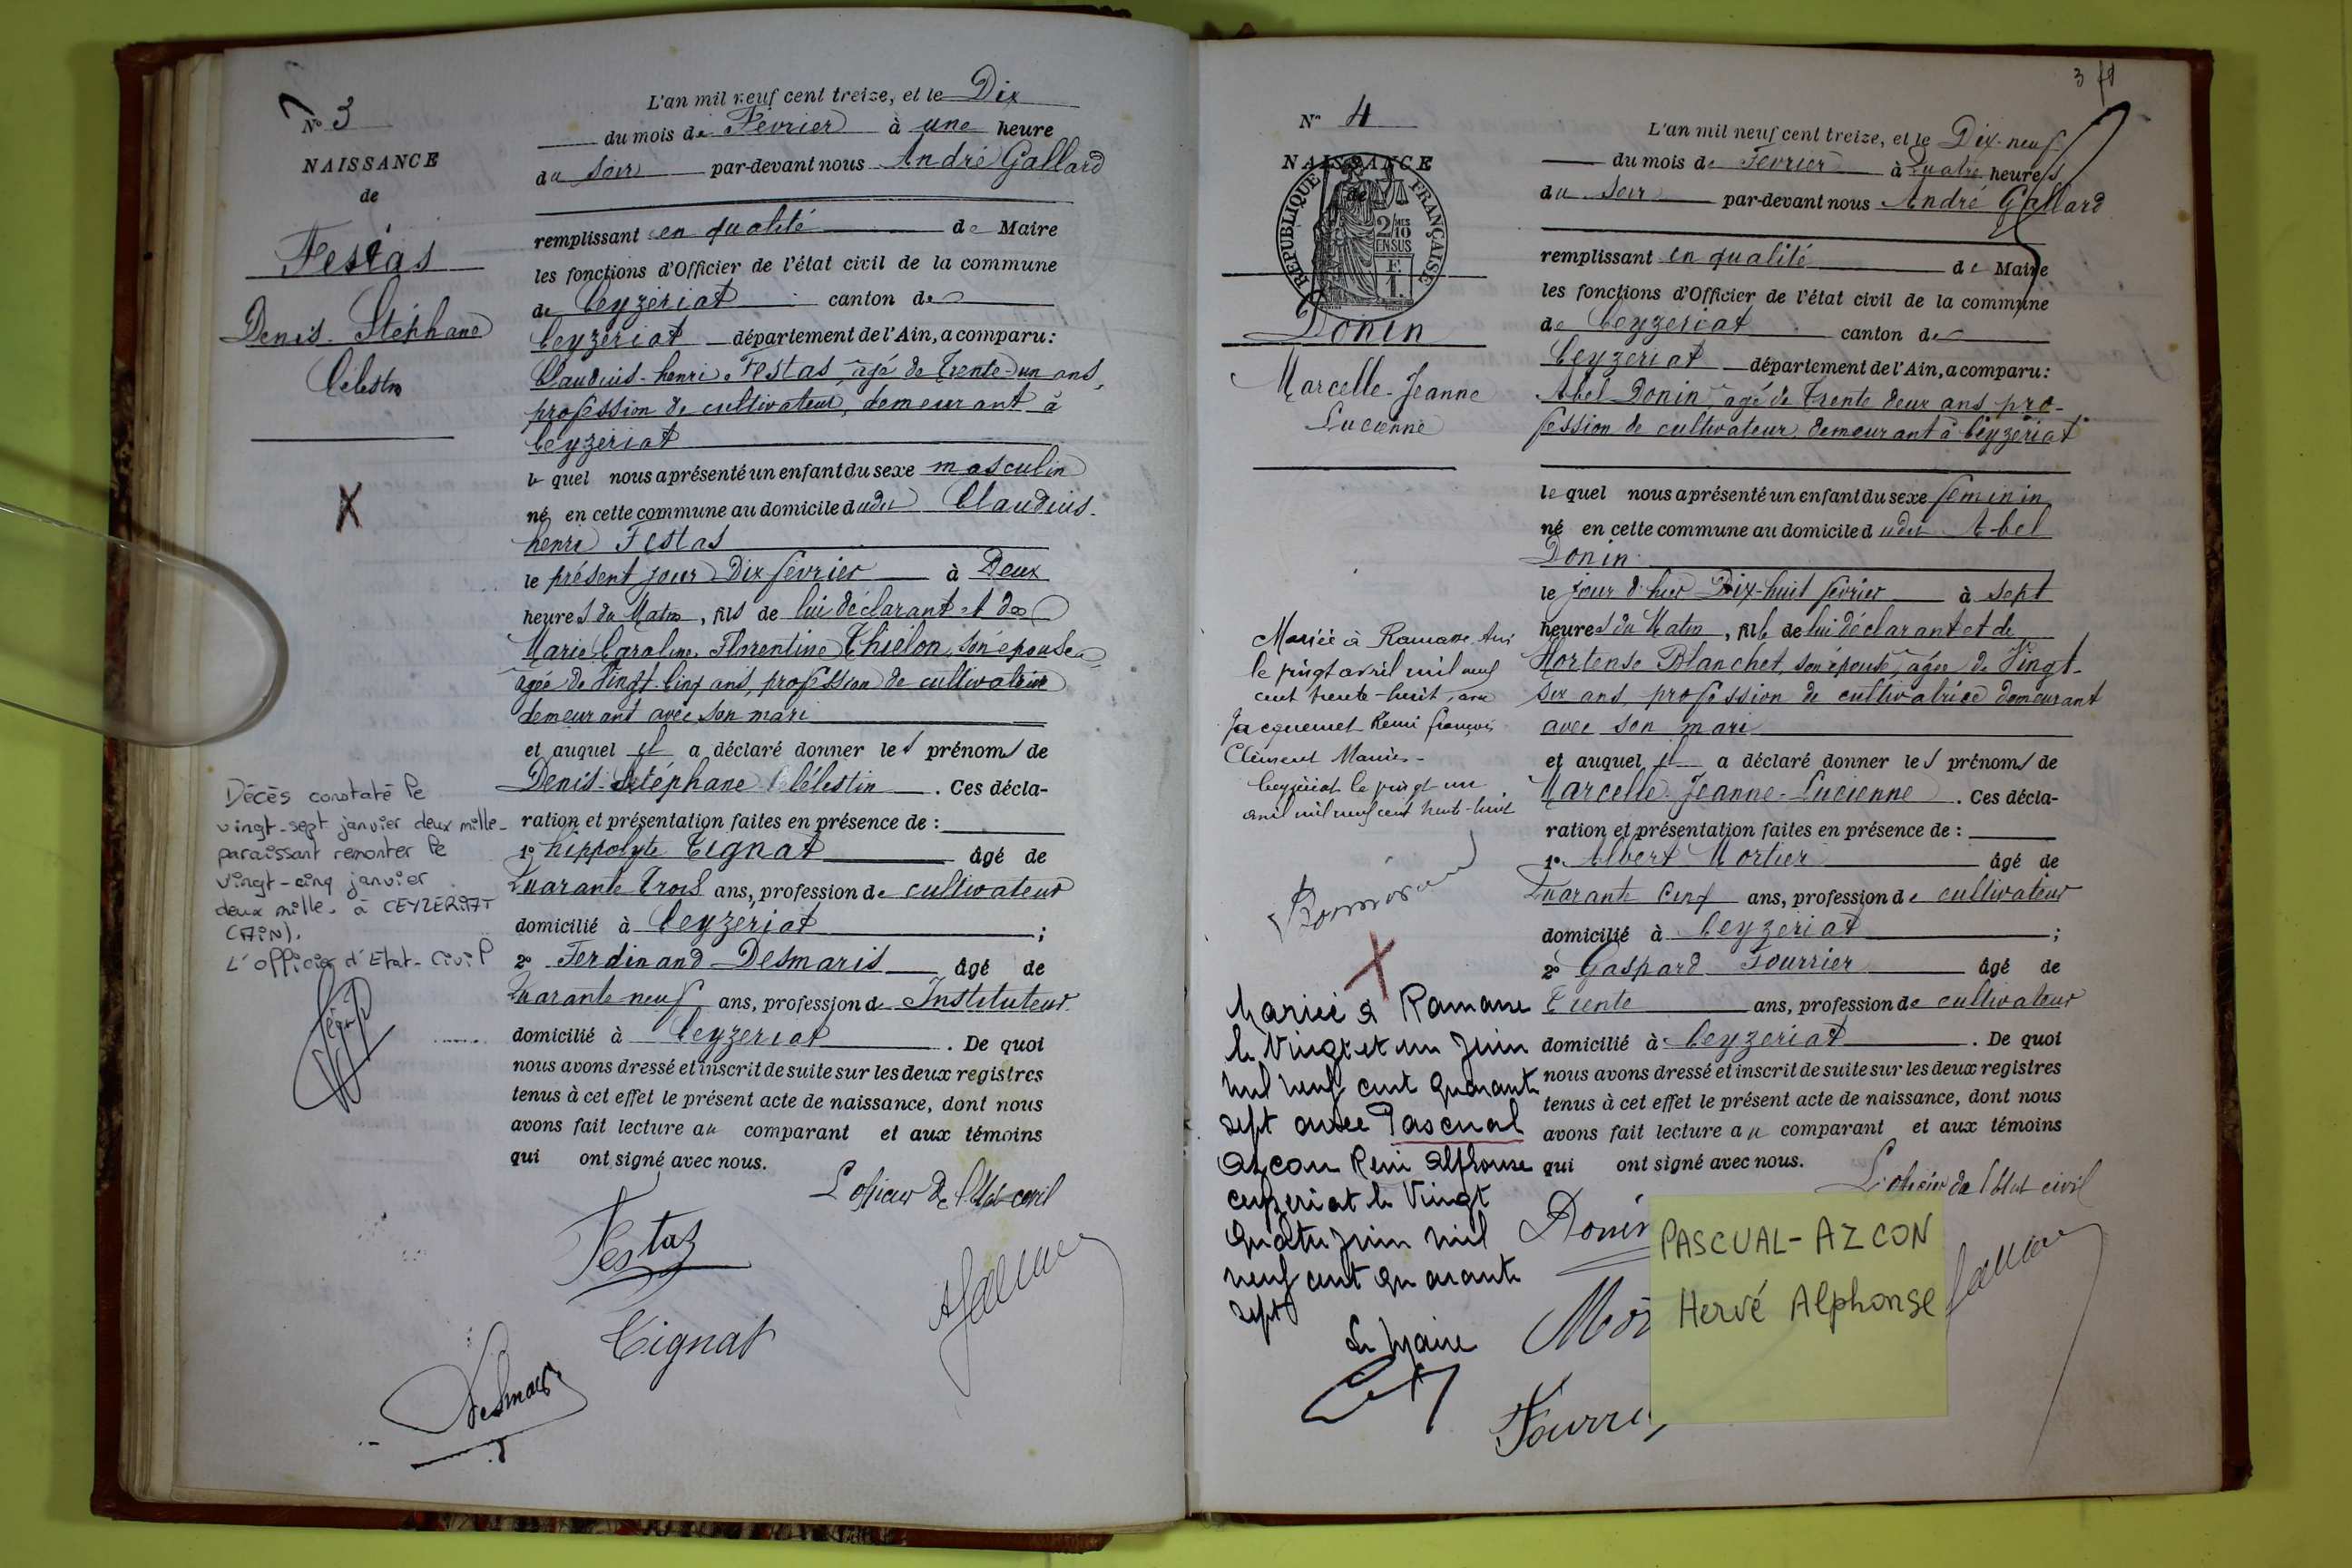 N° 3
NAISSANCE
de
Festas
Denis-Stéphane
Célestin
L'an mil neuf cent treize, et le Dix
du mois de Fevrier à une heure
du soir par-devant nous André Gallard
remplissant en qualité de Maire
les fonctions d'Officier de l'état civil de la commune
de Ceyzériat canton de
Ceyzériat département de l'Ain, a comparu:
Claudius-henri Festas, âgé de Trente-un ans,
profession de cultivateur, demeurant à
Ceyzériat
le quel nous a présenté un enfant du sexe masculin
né en cette commune au domicile dudit Claudius-
henri Festas
le présent jour Dix février à Deux
heures du Matin, fils de lui déclarant et de
Marie Caroline Florentine Thiélon, son épouse
âgée de Vingt-Cinq ans, profession de cultivatrice
demeurant avec son mari
et auquel il a déclaré donner les prénoms de
Denis-Stéphane Célestin. Ces décla-
ration et présentation faites en présence de :
1° hippolyte Tignat âgé de
Quarante Trois ans, profession de cultivateur
domicilié à Ceyzériat ;
2° Ferdinand Desmaris âgé de
Quarante neuf ans, profession de Instituteur
domicilié à Ceyzériat. De quoi
nous avons dressé et inscrit de suite sur les deux registres
tenus à cet effet le présent acte de naissance, dont nous
avons fait lecture au comparant et aux témoins
qui ont signé avec nous.
L'officier de l'Etat civil
Festaz
Tignat
Desmaris
Décès constaté le
vingt-sept janvier deux mille-
paraissant remonter le
vingt-cinq janvier
deux mille. à CEYZERIAT
(AIN).
L'officier d'Etat-Civil
3
N° 4
NAISSANCE
de
REPUBLIQUE FRANÇAISE
2/10
EN SUS
F.
1.
Donin
Marcelle-Jeanne
Lucienne
L'an mil neuf cent treize, et le Dix-neuf
du mois de Fevrier à Quatre heures
du soir par-devant nous André Gallard
remplissant en qualité de Maire
les fonctions d'Officier de l'état civil de la commune
de Ceyzeriat canton de
Ceyzeriat département de l'Ain, a comparu:
Abel Donin âgé de Trente deux ans pro-
fession de cultivateur, demeurant à Ceyzériat
le quel nous a présenté un enfant du sexe féminin
né en cette commune au domicile dudit Abel
Donin
le jour d'hier Dix-huit février à sept
heures du Matin, fille de lui déclarant et de
Hortense Blanchet, son épouse, âgée de Vingt-
six ans, profession de cultivatrice demeurant
avec son mari
et auquel il a déclaré donner les prénoms de
Marcelle-Jeanne-Lucienne. Ces décla-
ration et présentation faites en présence de :
1° Albert Mortier âgé de
Quarante Cinq ans, profession de cultivateur
domicilié à Ceyzériat ;
2° Gaspard Fourrier âgé de
Trente ans, profession de cultivateur
domicilié à Ceyzériat. De quoi
nous avons dressé et inscrit de suite sur les deux registres
tenus à cet effet le présent acte de naissance, dont nous
avons fait lecture au comparant et aux témoins
qui ont signé avec nous.
L'officier de l'Etat civil
Mariée à Ramasse Ain
le vingt avril mil neuf
cent trente-huit, avec
Jacquemet Rémi François
Clément Marius-
Ceyzériat le vingt un
avril mil neuf cent trente-huit
Mariée à Ramasse
le Vingt et un Juin
mil neuf cent quarante
sept avec Pascual
Azcon Remi Alphonse
ceyzeriat le Vingt
quatre juin mil
neuf cent quarante
sept
Le Maire
Donin
PASCUAL-AZCON
Hervé Alphonse